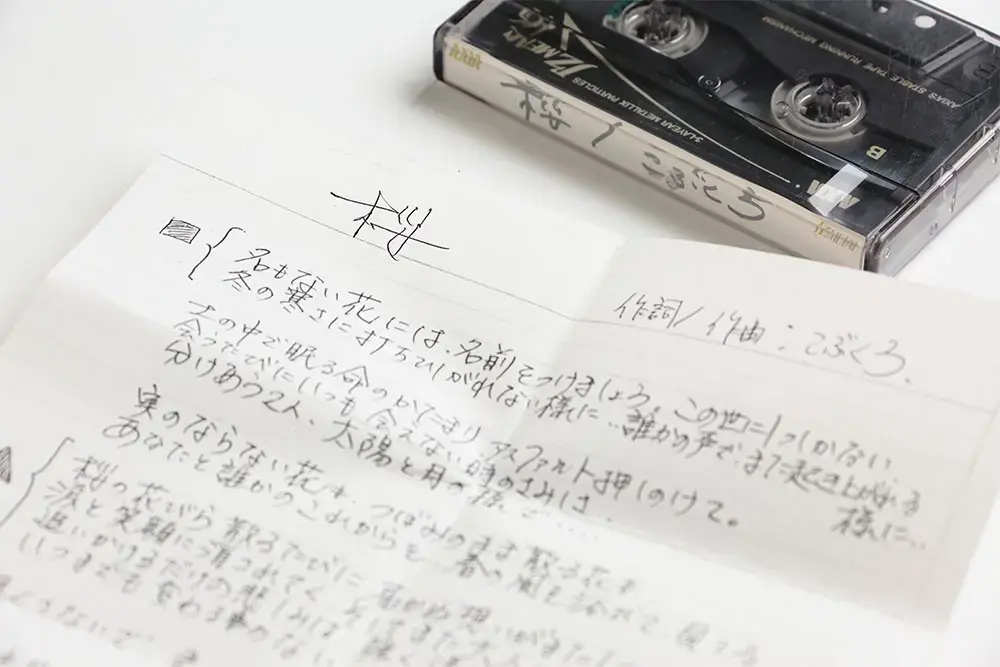 JZ METAL 46
3-LAYEAR METALLIX PARTICLES
AXIA'S STABLE TAPE RUNNING MECHANISM
B
AXIA
桜/こぶくろ
桜
作詞/作曲:こぶくろ.
名もない花には、名前をつけましょう、この世に1つしかない
冬の寒さに打ちひしがれない様に…誰かの声で、また起き上がれる様に…
土の中で眠る命のかたまり アスファルト押しのけて。
会うたびにいつも 会えない時のさみしさ
分けあう2人、太陽と月の様で……
実のならない花も、つぼみのまま散る花も
あなたと誰かのこれからを 春の風を浴びて見てる
桜の花びら散るたびに
涙と笑顔に
追いかけるだけの悲しみは
いつまでも変わる事のない